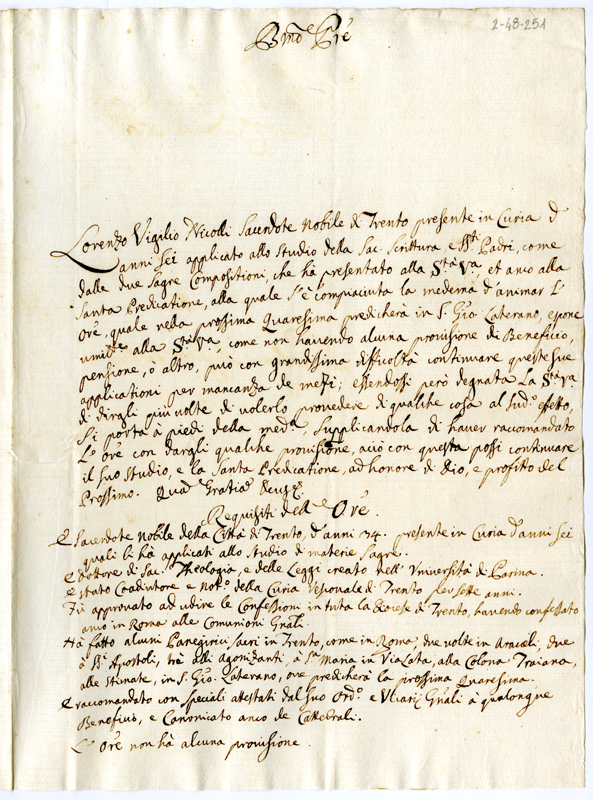 2-48-251
Bmo Pre
Lorenzo Vigilio Nicolli Sacerdote Nobile di Trento presente in Curia d'
anni sei applicato allo studio della Sac. Scrittura e SSti Padri, come
dalle due Sagre Compositioni, che hà presentato alla Stà Va, et anco alla
Santa Predicatione, alla quale s'è compiaciuta la medema d'animar L'
Ore, quale nella prossima Quaresima predicherà in S. Gio: Laterano, espone
umilte alla Stà Va, come non havendo alcuna provisione di Beneficio,
pensione, ò altro, può con grandissima difficoltà continuare queste sue
applicationi per mancanza de mezi; essendosi però degnata la Stà Va
di dirgli più volte di volerlo provedere di qualche cosa al sudo effetto,
si porta à piedi della meda, supplicandola di haver raccomandato
L'Ore con dargli qualche provisione, acciò con questa possi continuare
il suo studio, e la Santa Predicatione, ad honore di Dio, e profitto del
Prossimo. Quam Gratiam Deus
Requisiti dell'Ore.
È Sacerdote Nobile della Città di Trento, d'anni 34. presente in Curia d'anni sei
quali li hà applicati allo studio di materie Sagre.
È dottore di Sac. Theologia, e delle Leggi creato nell'Università di Parma.
È stato Coadiutore e Noto della Curia Vescovale di Trento per sette anni.
Fù approvato ad udire le Confessioni in tutta la Diocese di Trento, havendo confessato
anco in Roma alle Comunioni Gnali.
Hà fatto alcuni Panegirici sacri in Trento, come in Roma, due volte in Araceli, due
à SSti Apostoli, trè alli Agonizanti, à Sta Maria in Via Lata, alla Colona Traiana,
alle Stimate, in S. Gio: Laterano, ove predicherà la prossima Quaresima.
È raccomandato con speciali attestati dal suo Ordo e Vicarij Gnali à qualonque
Beneficio, e Canonicato anco de Cattedrali.
L'Ore non hà alcuna provisione.